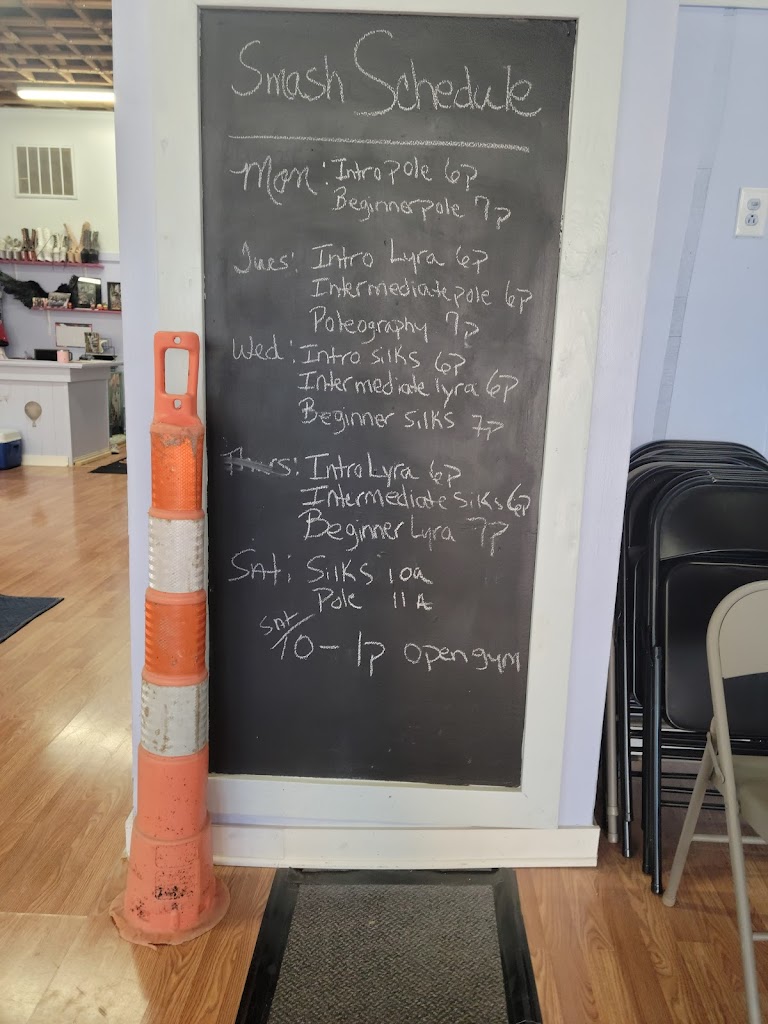 Smash Schedule
Mon: Intro pole 6p
Beginner pole 7p
Tues: Intro Lyra 6p
Intermediate pole 6p
Poleography 7p
Wed: Intro silks 6p
Intermediate lyra 6p
Beginner silks 7p
Thurs: Intro Lyra 6p
Intermediate silks 6p
Beginner Lyra 7p
SAt: Silks 10a
Pole 11A
SAt/10-1p open gym